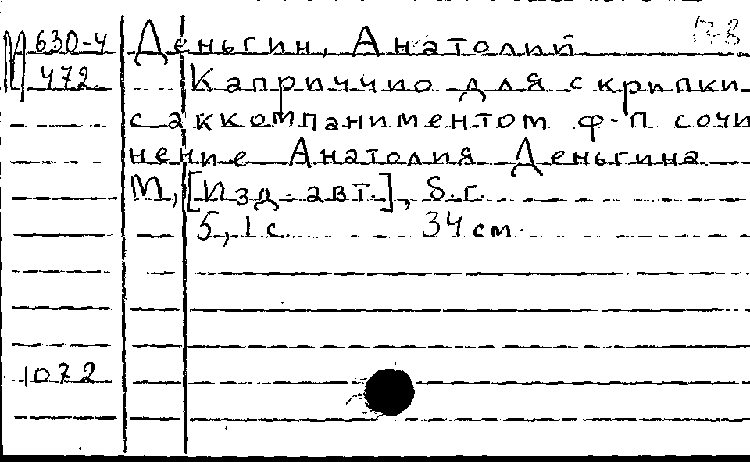 М 630-4 Деньгин, Анатолий
472 Каприччио для скрипки
с аккомпаниментом ф-п сочи
нение Анатолия Деньгина
М, [Изд. авт.], б.г.
5, 1 с. 34 см.
1072